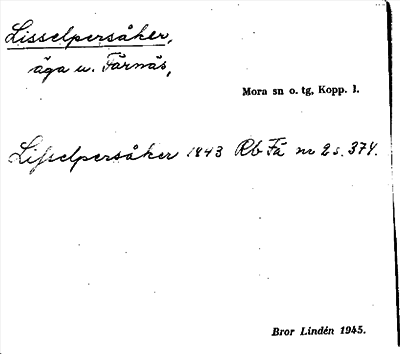 Lisselpersåker,
äga u. Färnäs,
Mora sn o. tg, Kopp. l.
Lisselpersåker 1843 Rb Fä nr 2 s. 374.
Bror Lindén 1945.